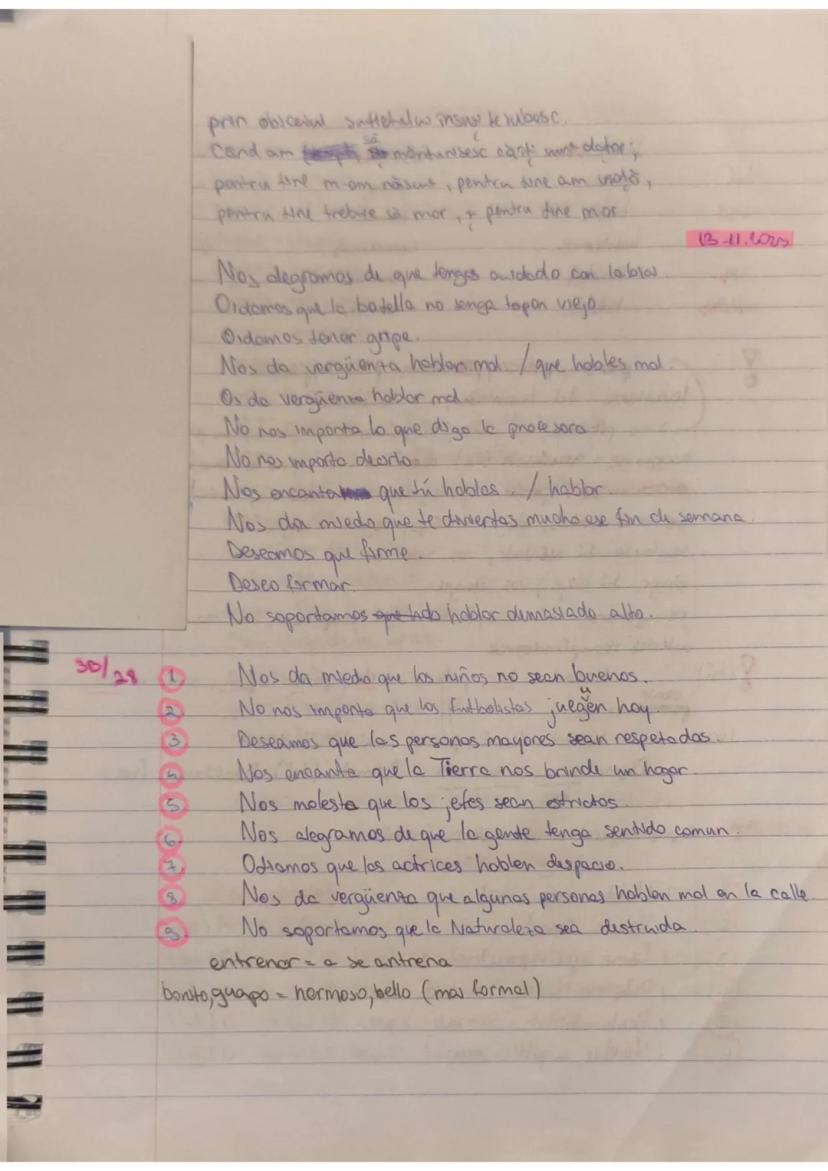 prin obiceiul sufletului însuși te iubesc.
Când am să mărturisesc cât sunt dator,
pentru tine m-am născut, pentru tine am viață,
pentru tine trebuie să mor, și pentru tine mor.
13.11.
Nos alegramos de que tengas cuidado con
Odamos que la botella no tenga tapon viejo
Odamos tener gripe.
Nos da vergüenza hablar mal / que hables mal
Os da vergüenza hablar mal
No nos importa lo que diga la profesora
No nos importa decirlo.
Nos encanta que tú hables. / hablar.
Nos da miedo que te diviertas mucho ese fin de semana.
Deseamos que firme.
Deseo firmar.
No soportamos hablar demasiado alto.
30/28
1 Nos da miedo que los niños no sean buenos.
2 No nos importa que los futbolistas jueguen hoy.
3 Deseamos que las personas mayores sean respetadas.
4 Nos encanta que la Tierra nos brinde un hogar.
5 Nos molesta que los jefes sean estrictos.
6 Nos alegramos de que la gente tenga sentido comun.
7 Odiamos que las actrices hablen despacio.
8 Nos da vergüenza que algunas personas hablen mal en la calle.
9 No soportamos que la Naturaleza sea destruida
entrenar = a se antrena
bonito, guapo = hermoso, bello (mas formal)